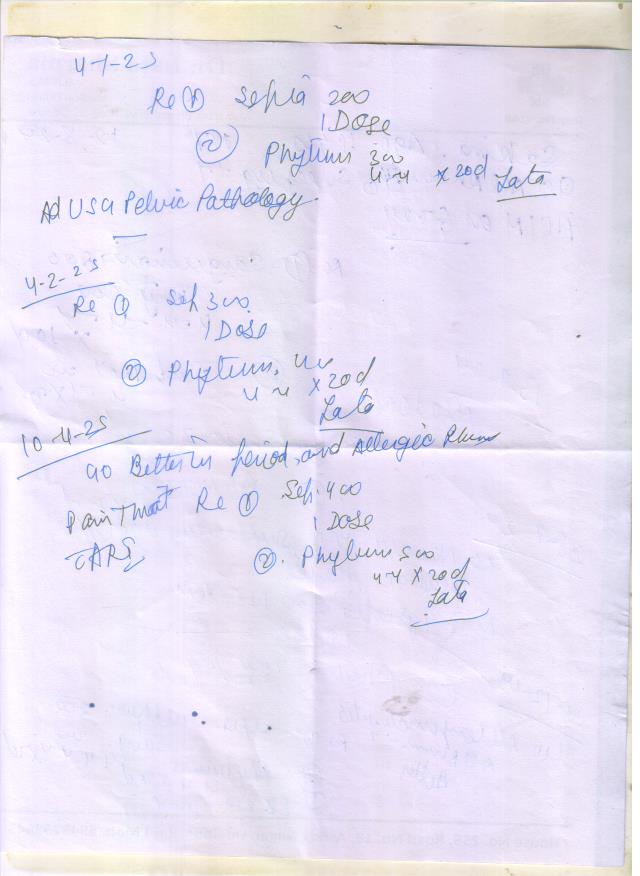 4-1-25
Re ① Sepia 200
1 DOSE
② Phytum 300
4-4 x 20d Lata
Ad USG Pelvic Pathology
4-2-25
Re ① Sep 300
1 DOSE
② Phytum,
4-4 x 20d
Lata
10-4-25
Better in period, and Allergic
Pain Throat Re ① Sep. 400
1 DOSE
②. Phytum 500
4-4 x 20d
Lata